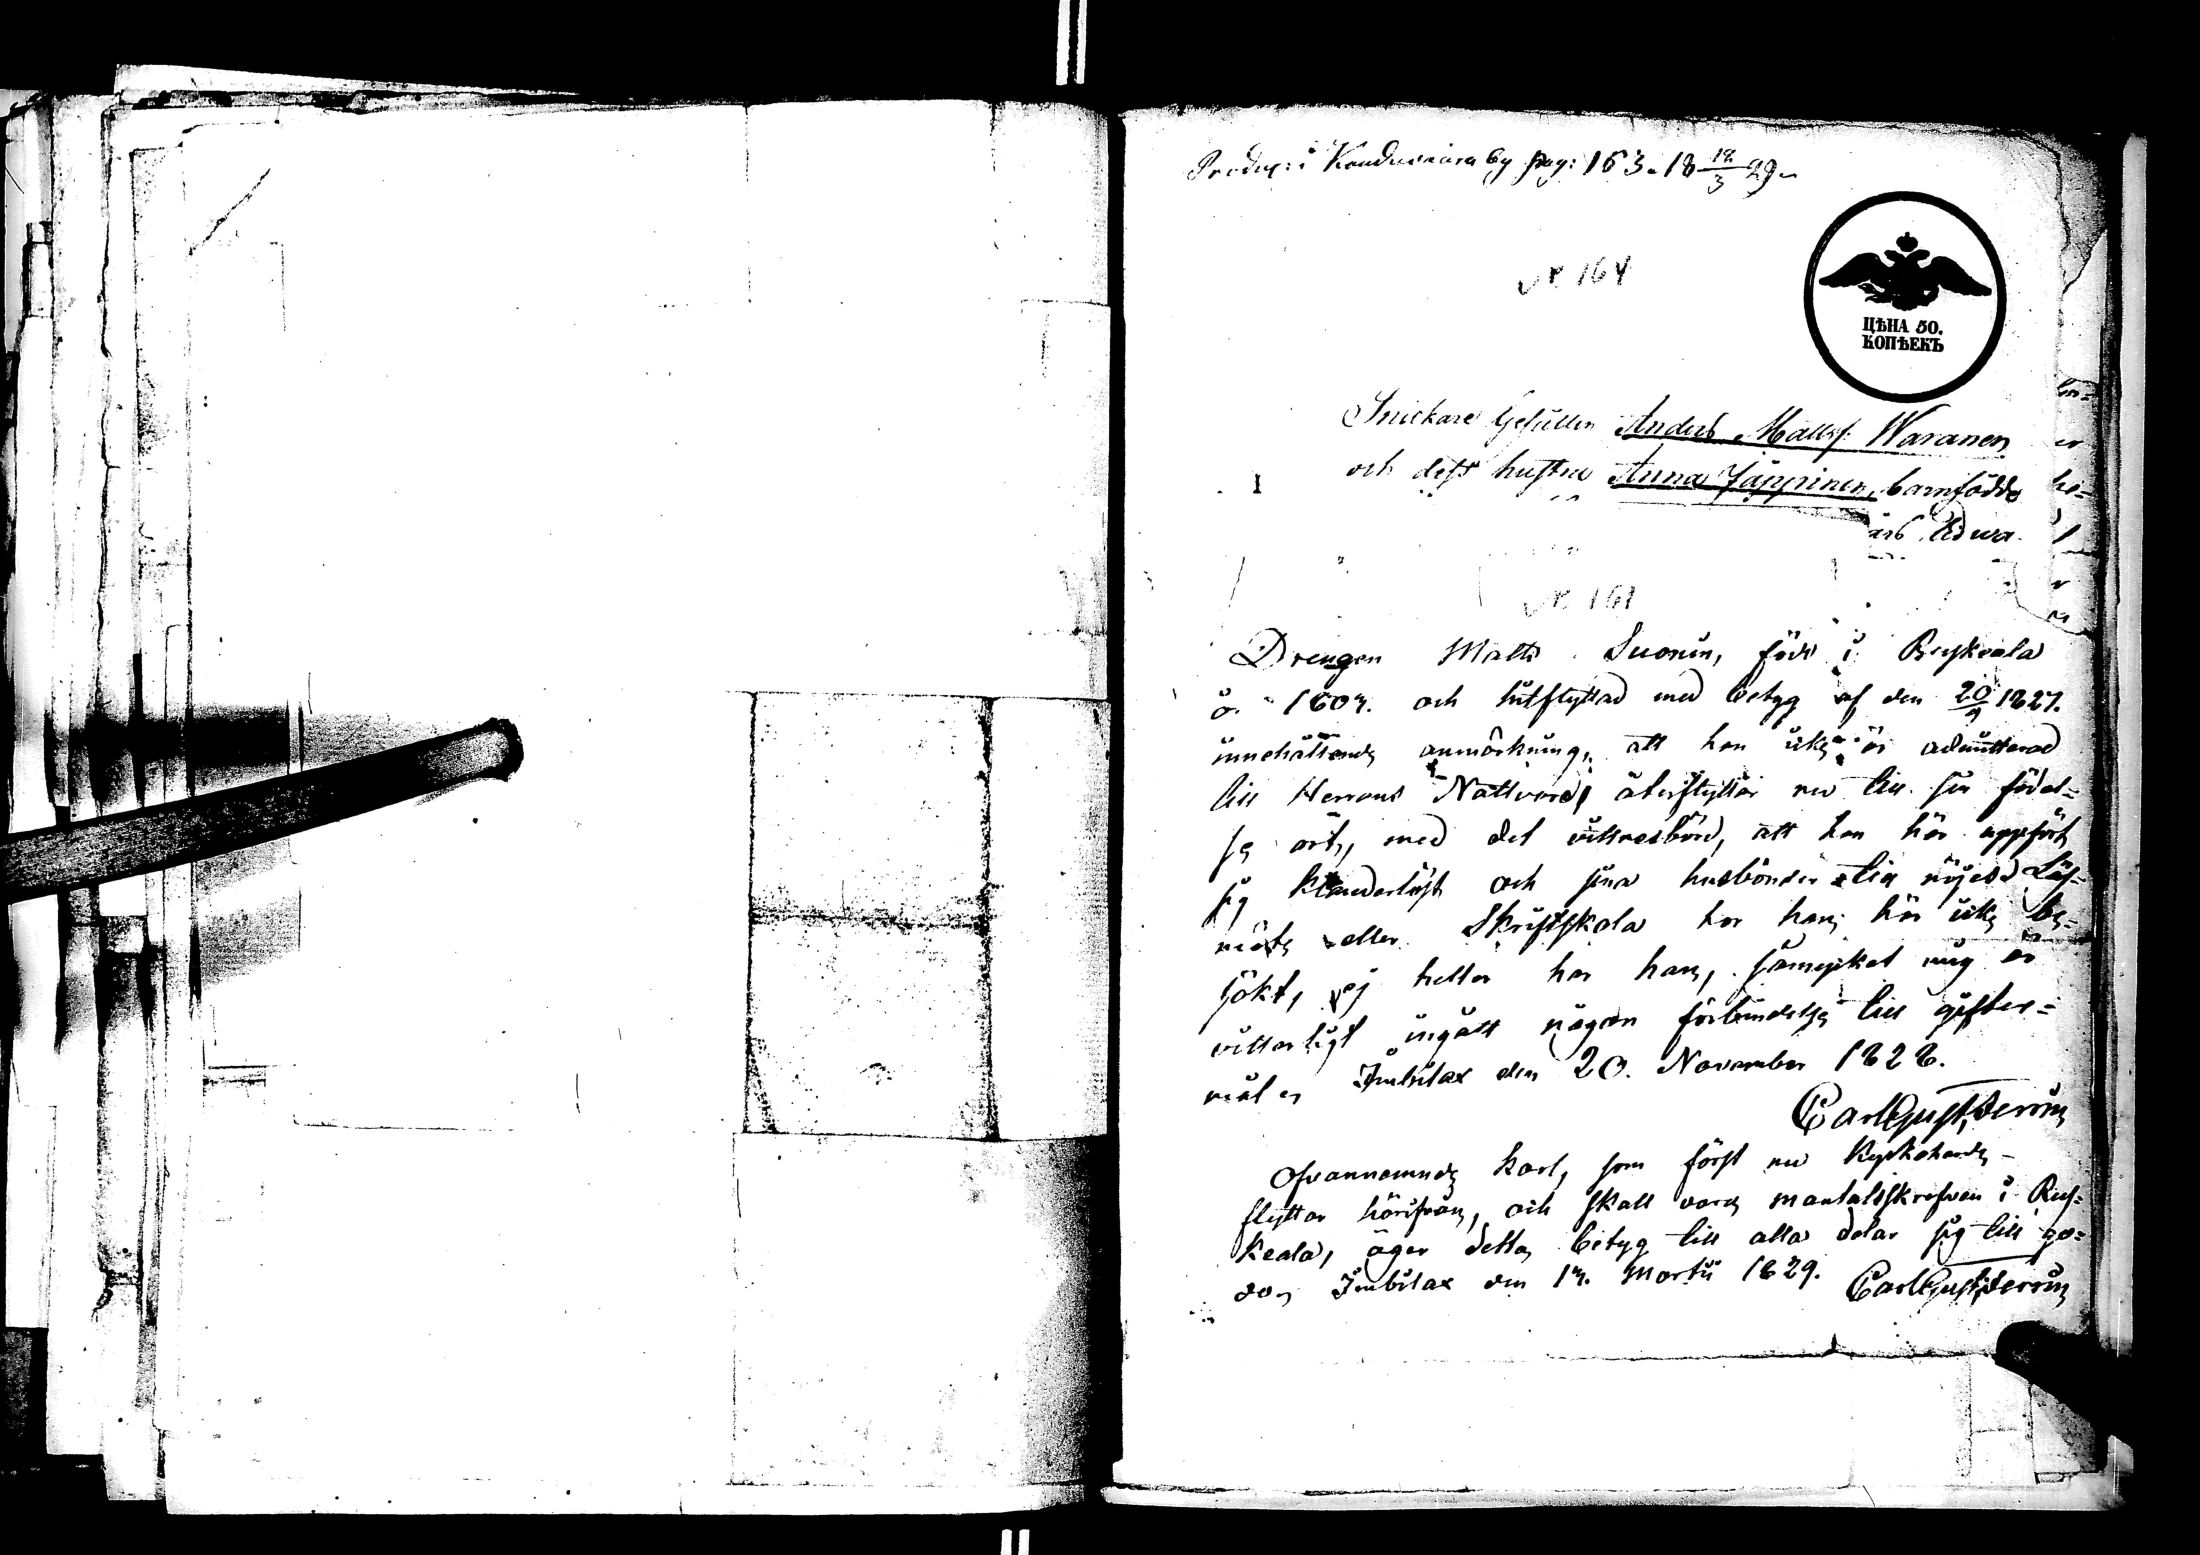 Produc: i Konduvaara by pag: 163. 18 12/3 29.
№ 164
ЦѢНА 50.
КОПѢЕКЪ
Snickare Gesällen Anders Mattss: Waranen
och dess hustru Anna Jäppinen, barnfödde
№ 161
Drengen Matts Suonin, född i Ruskeala
å. 1807. och hitflyttad med betyg af den 20/9 1827.
innehållande anmärkning, att han icke är admitterad
till Herrans Nattvard, återflyttar nu till sin födel=
se ort, med det vittnesbörd, att han här uppfört
sig klanderlöst och sina husbönder till nöjes. Läs=
möte eller Skriftskola har han här icke be=
sökt, ej heller har han, såmycket mig är
vitterligt ingått någon förbindelse till gifter=
mål. Imbilax den 20. November 1828.
Carl Gust.
Ofvannämnde karl, som först nu
flyttar härifrån, och skall vara mantalsskrefven i Rus=
keala, äger detta betyg till alla delar sig till go=
do. Imbilax den 17. Martii 1829. Carl Gust.